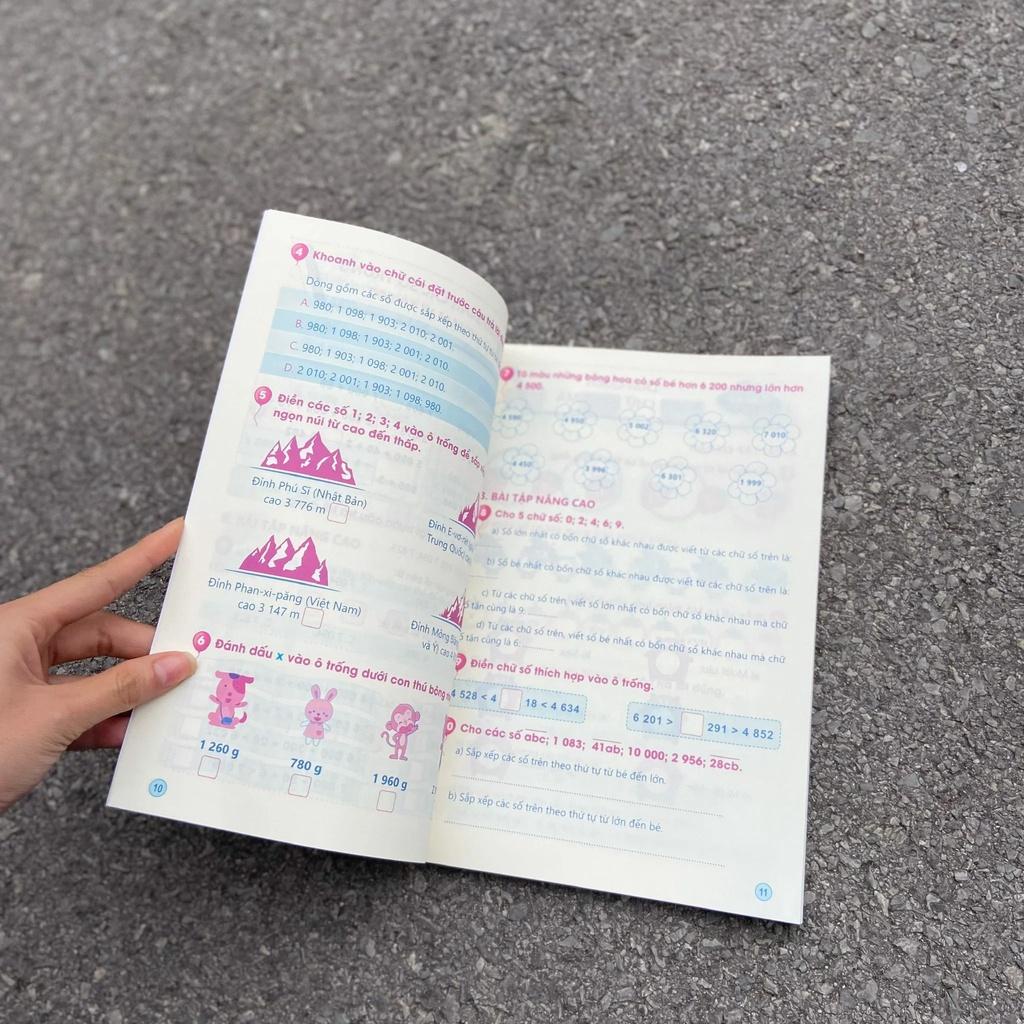 4 Khoanh vào chữ cái đặt trước câu trả lời
Dòng gồm các số được sắp xếp theo thứ tự từ
A. 980; 1 098; 1 903; 2 010; 2 001.
B. 980; 1 098; 1 903; 2 001; 2 010.
C. 980; 1 903; 1 098; 2 001; 2 010.
D. 2 010; 2 001; 1 903; 1 098; 980.
5 Điền các số 1; 2; 3; 4 vào ô trống để sắp xếp
ngọn núi từ cao đến thấp.
Đỉnh Phú Sĩ (Nhật Bản)
cao 3 776 m
Đỉnh E-vơ-rét
Trung Quốc)
Đỉnh Phan-xi-păng (Việt Nam)
cao 3 147 m
Đỉnh Mông
và Ý) cao 4
6 Đánh dấu x vào ô trống dưới con thú bông
1 260 g
780 g
1 960 g
10
7 Tô màu những bông hoa có số bé hơn 6 200 nhưng lớn hơn
4 500.
4 590
4 950
5 002
6 320
7 010
4 450
3 996
6 301
1 999
3. BÀI TẬP NÂNG CAO
8 Cho 5 chữ số: 0; 2; 4; 6; 9.
a) Số lớn nhất có bốn chữ số khác nhau được viết từ các chữ số trên là:
b) Số bé nhất có bốn chữ số khác nhau được viết từ các chữ số trên là:
c) Từ các chữ số trên, viết số lớn nhất có bốn chữ số khác nhau mà chữ
số tận cùng là 9.
d) Từ các chữ số trên, viết số bé nhất có bốn chữ số khác nhau mà chữ
số tận cùng là 6.
9 Điền chữ số thích hợp vào ô trống.
4 528 < 4 18 < 4 634
6 201 > 291 > 4 852
10 Cho các số abc; 1 083; 41ab; 10 000; 2 956; 28cb.
a) Sắp xếp các số trên theo thứ tự từ bé đến lớn.
b) Sắp xếp các số trên theo thứ tự từ lớn đến bé.
11